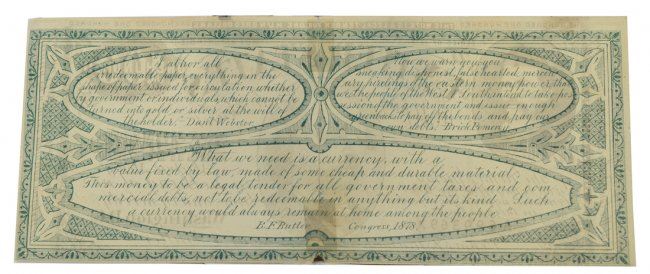 I abhor all
irredeemable paper, everything in the
shape of paper issued for circulation whether
by government or individuals, which cannot be
turned into gold or silver at the will of
the holder." Dan'l Webster
Now we warn you, you
sneaking, dishonest, false hearted, mercen-
ary hirelings of the eastern money power that
we the people of the West & South will take poss-
ession of the government and issue enough
greenbacks to pay off the bonds, and pay our
own debts." Brick Pomeroy.
"What we need is a currency, with a
value fixed by law, made of some cheap and durable material;
This money to be a legal tender for all government taxes and com
mercial debts, not to be redeemable in anything but its kind. Such
a currency would always remain at home among the people
B. F. Butler Congress, 1878.